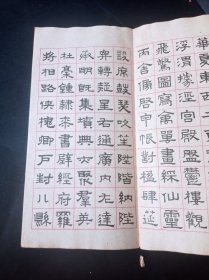 華夏東西二
浮渭據涇宮殿盤鬱樓觀
飛驚圖寫禽獸畫綵仙靈
丙舍傍啓甲帳對楹肆筵
設席鼓瑟吹笙陞階納陛
弁轉疑星右通廣內左達
承明既集墳典亦聚羣英
杜稾鍾隸漆書壁經府羅
將相路俠槐卿戶封八縣